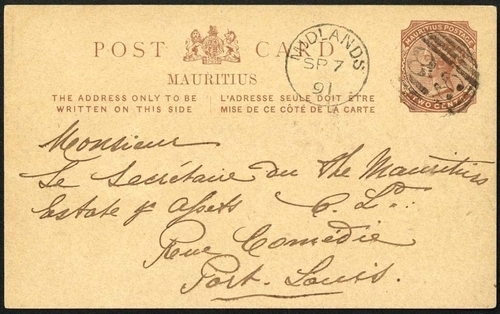 POST CARD
MAURITIUS
THE ADDRESS ONLY TO BE
WRITTEN ON THIS SIDE
L'ADRESSE SEULE DOIT ÊTRE
MISE DE CE CÔTÉ DE LA CARTE
MIDLANDS
SP 7
91
MAURITIUS POSTAGE
TWO CENTS
Monsieur
Le Secrétaire du The Mauritius
Estate & Assets C. Ld.:
Rue Comédie
Port-Louis.